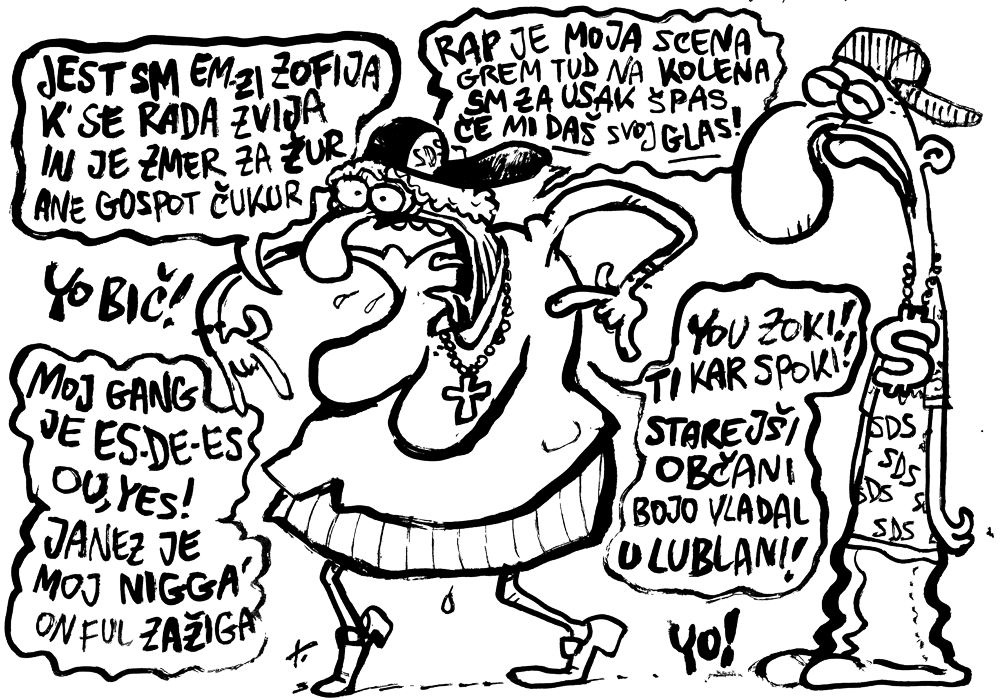 JEST SM EM-ZI ZOFIJA
K' SE RADA ZVIJA
IN JE ZMER ZA ŽUR
ANE GOSPOT ČUKUR
RAP JE MOJA SCENA
GREM TUD NA KOLENA
SM ZA USAK ŠPAS
ČE MI DAŠ SVOJ GLAS!
SDS
YO BIČ!
MOJ GANG
JE ES-DE-ES
OU, YES!
JANEZ JE
MOJ NIGGA'
ON FUL ZAŽIGA
YOU ZOKI!!
TI KAR SPOKI!
STAREJŠI
OBČANI
BOJO VLADAL
U LUBLANI!
YO!
$
SDS
SDS
SDS
S
SDS